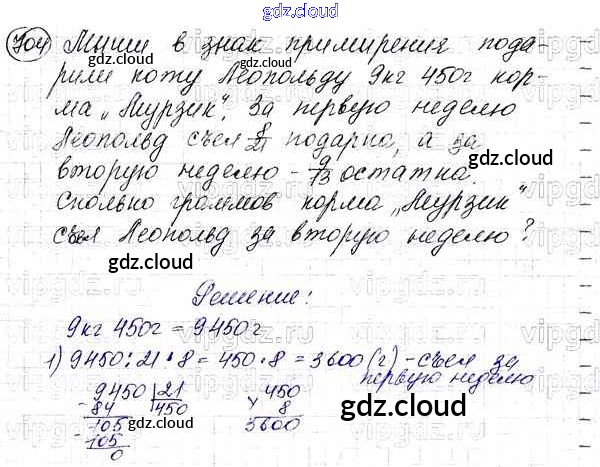 gdz.cloud
704 Мыши в знак примирения пода-
gdz.cloud
рили коту Леопольду 9кг 450г кор-
ма „Мурзик“. За первую неделю
Леопольд съел 8/21 подарка, а за
gdz.cloud
вторую неделю - 9/13 остатка.
gdz.cloud
Сколько граммов корма „Мурзик“
съел Леопольд за вторую неделю?
gdz.cloud
Решение:
9кг 450г = 9450г
1) 9450:21·8 = 450·8 = 3600 (г) - съел за
первую неделю
9450 21 450
- 84 450 × 8
105 3600
- 105
0
gdz.cloud
gdz.cloud